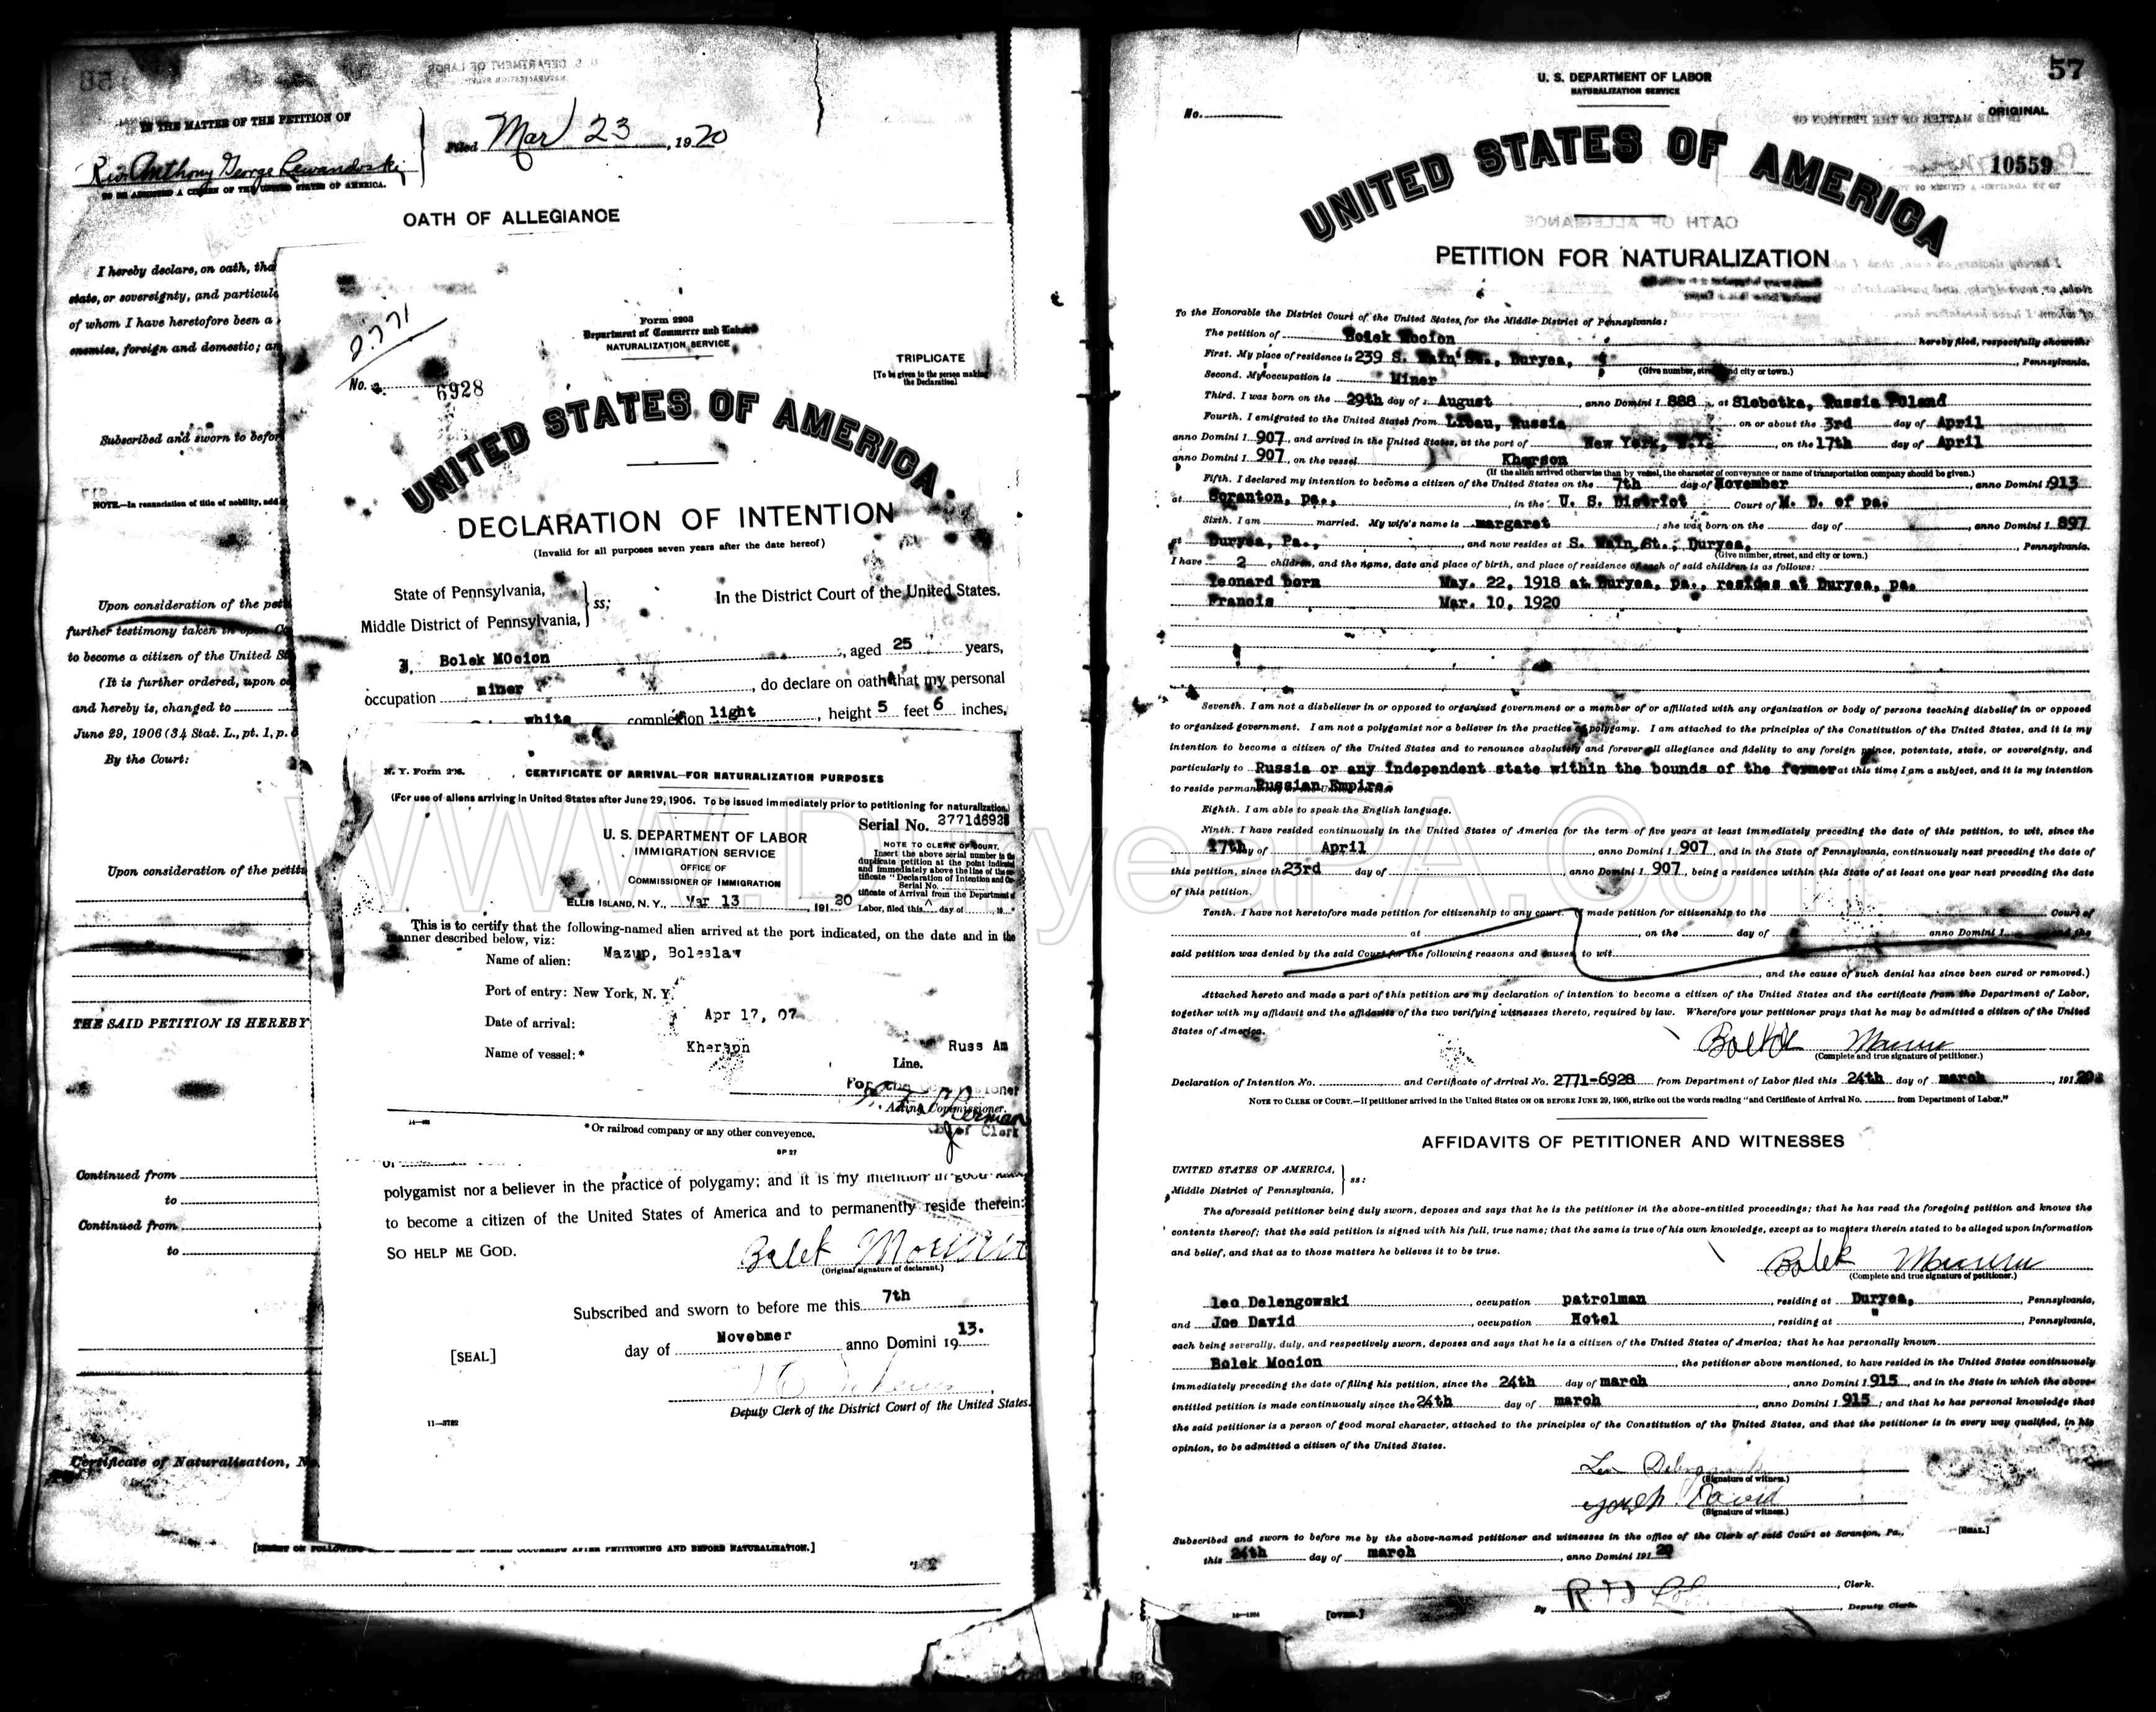 IN THE MATTER OF THE PETITION OF
Anthony George Lewandoski
TO BE ADMITTED A CITIZEN OF THE UNITED STATES OF AMERICA.
Filed Mar 23, 1920
OATH OF ALLEGIANCE
I hereby declare, on oath, tha
state, or sovereignty, and particula
of whom I have heretofore been a
enemies, foreign and domestic; an
Subscribed and sworn to befor
NOTE.—In renunciation of title of nobility, add
Upon consideration of the peti
further testimony taken in open Co
to become a citizen of the United St
(It is further ordered, upon co
and hereby is, changed to
June 29, 1906 (34 Stat. L., pt. 1, p.
By the Court:
Upon consideration of the petiti
THE SAID PETITION IS HEREBY
Continued from
to
Continued from
to
Certificate of Naturalization, No.
AFTER PETITIONING AND BEFORE NATURALIZATION.]
2771
Form 2203
Department of Commerce and Labor
NATURALIZATION SERVICE
TRIPLICATE
[To be given to the person making the Declaration]
No. 6928
UNITED STATES OF AMERICA
DECLARATION OF INTENTION
(Invalid for all purposes seven years after the date hereof)
State of Pennsylvania,
Middle District of Pennsylvania, } ss;
In the District Court of the United States.
I, Bolek MOcion, aged 25 years,
occupation miner, do declare on oath that my personal
white complexion light, height 5 feet 6 inches,
N. Y. Form 276.
CERTIFICATE OF ARRIVAL—FOR NATURALIZATION PURPOSES
(For use of aliens arriving in United States after June 29, 1906. To be issued immediately prior to petitioning for naturalization.)
Serial No.
U. S. DEPARTMENT OF LABOR
IMMIGRATION SERVICE
OFFICE OF
COMMISSIONER OF IMMIGRATION
ELLIS ISLAND, N. Y., Mar 13, 191 20
NOTE TO CLERK OF COURT.
Insert the above serial number in the
duplicate petition at the point indicated
and immediately above the line of the
tificate "Declaration of Intention and Ce
Serial No.
tificate of Arrival from the Department
Labor, filed this day of
This is to certify that the following-named alien arrived at the port indicated, on the date and in the
manner described below, viz:
Name of alien: Mazup, Boleslaw
Port of entry: New York, N. Y.
Date of arrival: Apr 17, 07
Name of vessel:* Kherson Russ Am
Line.
For the Commissioner
Acting Commissioner.
Chief Clerk
*Or railroad company or any other conveyence.
SP 27
polygamist nor a believer in the practice of polygamy; and it is my intention in good
to become a citizen of the United States of America and to permanently reside therein:
SO HELP ME GOD.
Bolek
(Original signature of declarant.)
Subscribed and sworn to before me this 7th
day of Novebmer anno Domini 19 13.
[SEAL]
Deputy Clerk of the District Court of the United States.
11—3782
57
U. S. DEPARTMENT OF LABOR
NATURALIZATION SERVICE
No.
ORIGINAL
10559
UNITED STATES OF AMERICA
PETITION FOR NATURALIZATION
To the Honorable the District Court of the United States, for the Middle District of Pennsylvania:
The petition of Bolek Mocion hereby filed, respectfully showeth:
First. My place of residence is 239 S. Main St., Duryea, Pennsylvania.
(Give number, street, and city or town.)
Second. My occupation is Miner
Third. I was born on the 29th day of August, anno Domini 1 888, at Slobotka, Russia Poland
Fourth. I emigrated to the United States from Libau, Russia on or about the 3rd day of April
anno Domini 1 907, and arrived in the United States, at the port of New York, N.Y. on the 17th day of April
anno Domini 1 907, on the vessel Kherson
(If the alien arrived otherwise than by vessel, the character of conveyance or name of transportation company should be given.)
Fifth. I declared my intention to become a citizen of the United States on the 7th day of November, anno Domini 1913
at Scranton, pa., in the U. S. District Court of M. D. of pa.
Sixth. I am married. My wife's name is margaret; she was born on the day of, anno Domini 1 897
at Duryea, Pa., and now resides at S. Main St., Duryea, Pennsylvania.
(Give number, street, and city or town.)
I have 2 children, and the name, date and place of birth, and place of residence of each of said children is as follows:
leonard born May. 22, 1918 at Duryea, pa., resides at Duryea, pa.
Francis Mar. 10, 1920
Seventh. I am not a disbeliever in or opposed to organized government or a member of or affiliated with any organization or body of persons teaching disbelief in or opposed
to organized government. I am not a polygamist nor a believer in the practice of polygamy. I am attached to the principles of the Constitution of the United States, and it is my
intention to become a citizen of the United States and to renounce absolutely and forever all allegiance and fidelity to any foreign prince, potentate, state, or sovereignty, and
particularly to Russia or any independent state within the bounds of the former at this time I am a subject, and it is my intention
to reside perman Russian Empire.
Eighth. I am able to speak the English language.
Ninth. I have resided continuously in the United States of America for the term of five years at least immediately preceding the date of this petition, to wit, since the
17th day of April, anno Domini 1 907, and in the State of Pennsylvania, continuously next preceding the date of
this petition, since th 23rd day of, anno Domini 1 907, being a residence within this State of at least one year next preceding the date
of this petition.
Tenth. I have not heretofore made petition for citizenship to any court. (I made petition for citizenship to the Court of
at, on the day of anno Domini 1 and the
said petition was denied by the said Court for the following reasons and causes, to wit
, and the cause of such denial has since been cured or removed.)
Attached hereto and made a part of this petition are my declaration of intention to become a citizen of the United States and the certificate from the Department of Labor,
together with my affidavit and the affidavits of the two verifying witnesses thereto, required by law. Wherefore your petitioner prays that he may be admitted a citizen of the United
States of America.
Bolek
(Complete and true signature of petitioner.)
Declaration of Intention No. and Certificate of Arrival No. 2771-6928 from Department of Labor filed this 24th day of march, 191 20
NOTE TO CLERK OF COURT.—If petitioner arrived in the United States ON OR BEFORE JUNE 29, 1906, strike out the words reading "and Certificate of Arrival No. from Department of Labor."
AFFIDAVITS OF PETITIONER AND WITNESSES
UNITED STATES OF AMERICA,
Middle District of Pennsylvania, } ss:
The aforesaid petitioner being duly sworn, deposes and says that he is the petitioner in the above-entitled proceedings; that he has read the foregoing petition and knows the
contents thereof; that the said petition is signed with his full, true name; that the same is true of his own knowledge, except as to matters therein stated to be alleged upon information
and belief, and that as to those matters he believes it to be true.
Bolek
(Complete and true signature of petitioner.)
leo Delengowski, occupation patrolman, residing at Duryea, Pennsylvania,
and Joe David, occupation Hotel, residing at " Pennsylvania,
each being severally, duly, and respectively sworn, deposes and says that he is a citizen of the United States of America; that he has personally known
Bolek Mocion, the petitioner above mentioned, to have resided in the United States continuously
immediately preceding the date of filing his petition, since the 24th day of march, anno Domini 1 915, and in the State in which the above-
entitled petition is made continuously since the 24th day of march, anno Domini 1 915; and that he has personal knowledge that
the said petitioner is a person of good moral character, attached to the principles of the Constitution of the United States, and that the petitioner is in every way qualified, in his
opinion, to be admitted a citizen of the United States.
(Signature of witness.)
David
(Signature of witness.)
Subscribed and sworn to before me by the above-named petitioner and witnesses in the office of the Clerk of said Court at Scranton, Pa., [SEAL.]
this 24th day of march, anno Domini 191 20
, Clerk.
[OVER.]
By, Deputy Clerk.
WWW.DuryeaPA.Com